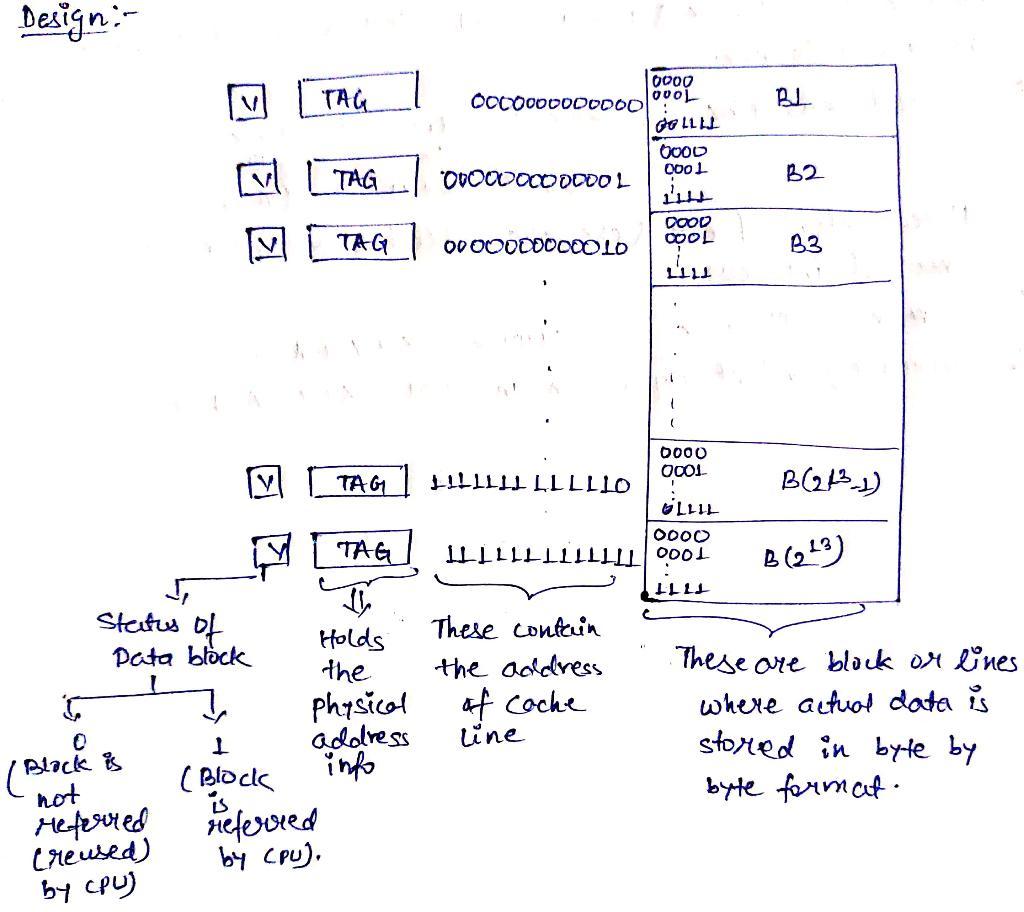 Design:-
V TAG 0000000000000 0000
0001 B1
001111
V TAG 0000000000001 0000
0001 B2
1111
V TAG 0000000000010 0000
0001 B3
1111
0000
V TAG 1111111111110 0001 B(2^13-1)
01111
V TAG 1111111111111 0000
0001 B(2^13)
1111
Status of
Data block
0
(Block is
not
referred
(reused)
by CPU)
1
(Block
is
referred
by CPU).
Holds
the
physical
address
info
These contain
the address
of cache
line
These are block or lines
where actual data is
stored in byte by
byte format.